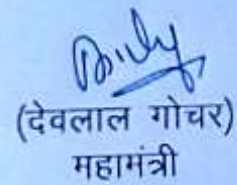 (देवलाल गोचर)
महामंत्री